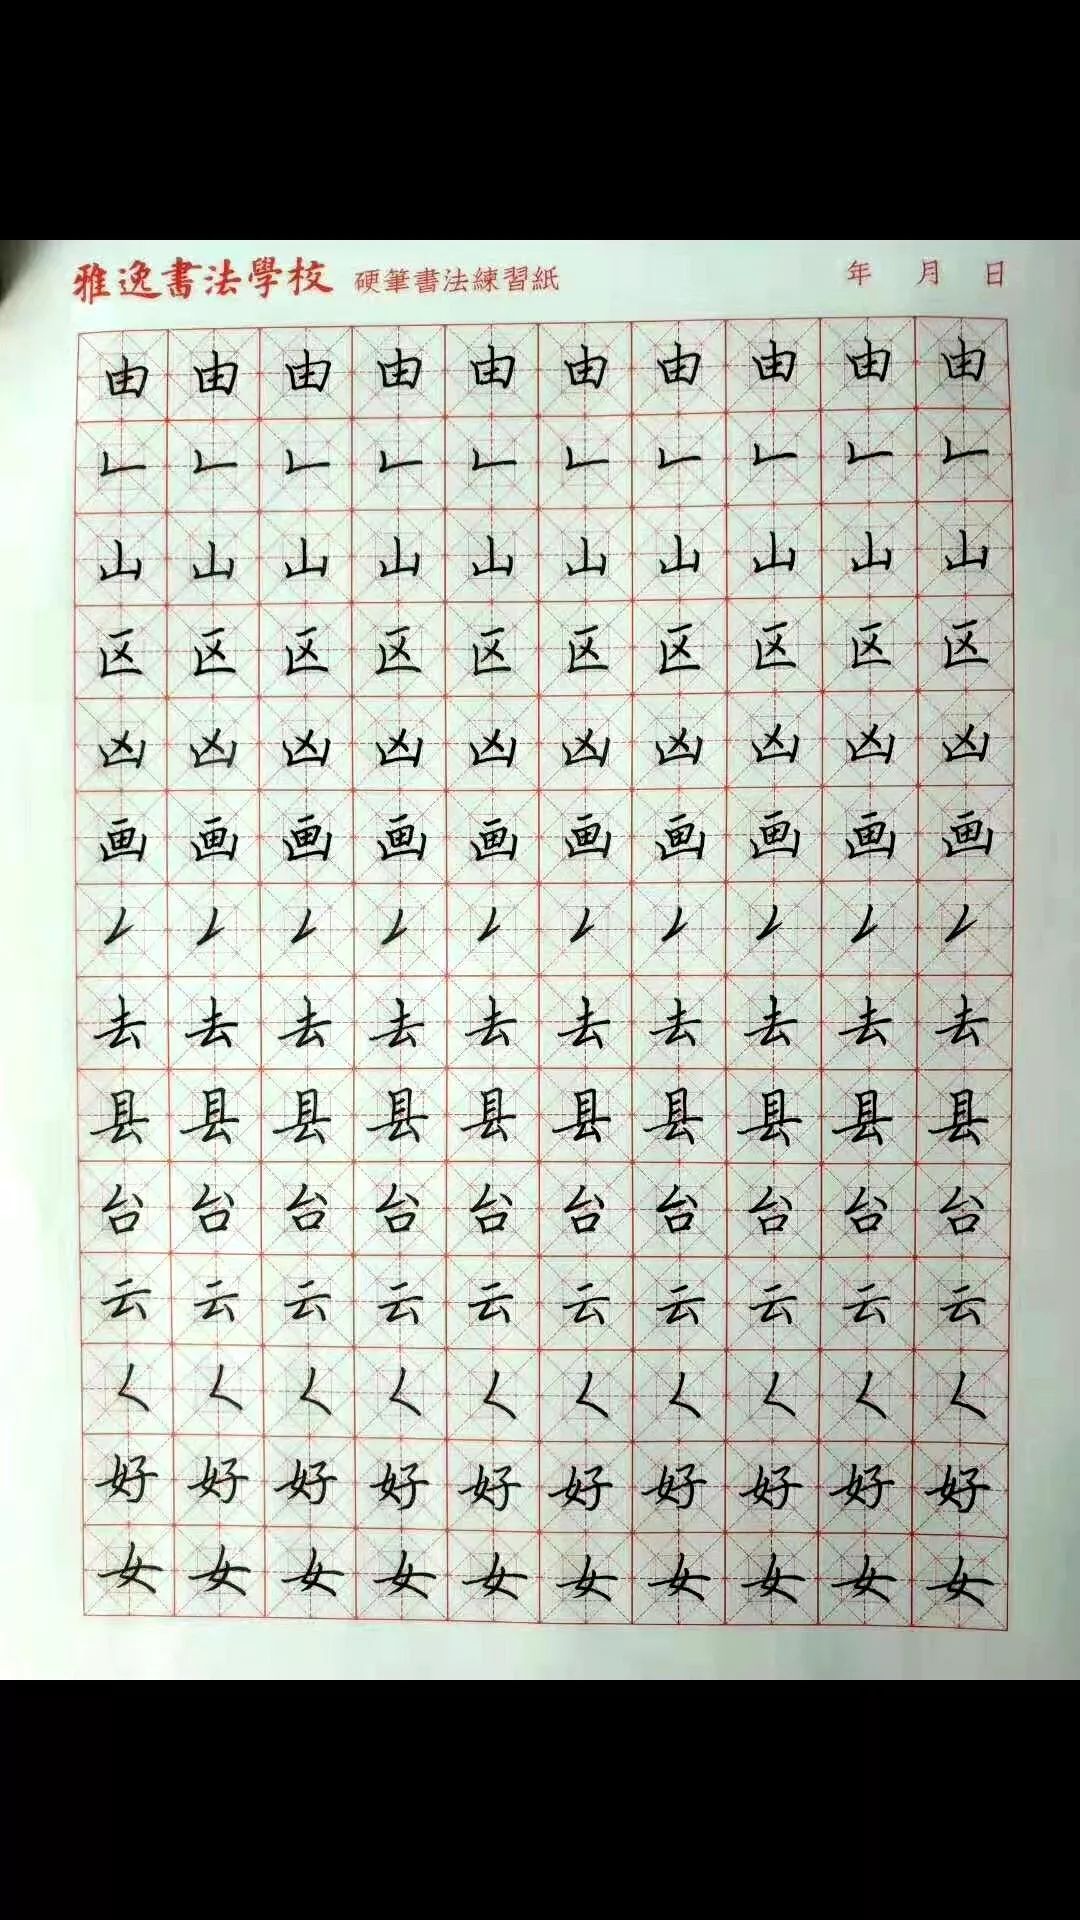 雅逸書法學校 硬筆書法練習紙 年 月 日
由由由由由由由由由由
𠃊𠃊𠃊𠃊𠃊𠃊𠃊𠃊𠃊𠃊
山山山山山山山山山山
区区区区区区区区区区
凶凶凶凶凶凶凶凶凶凶
画画画画画画画画画画
𠃋𠃋𠃋𠃋𠃋𠃋𠃋𠃋𠃋𠃋
去去去去去去去去去去
县县县县县县县县县县
台台台台台台台台台台
云云云云云云云云云云
𡿨𡿨𡿨𡿨𡿨𡿨𡿨𡿨𡿨𡿨
好好好好好好好好好好
女女女女女女女女女女